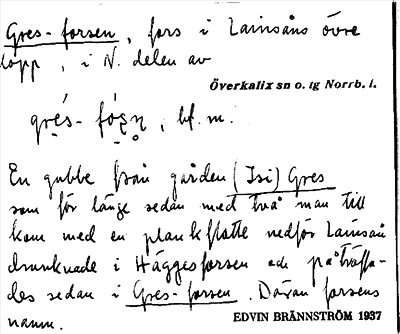 Gres-forsen, fors i Lainsåns övre
lopp, i N. delen av
Överkalix sn o. tg Norrb. l.
gre̬s- fó̬ṣn̥, bf. m.
En gubbe från gården (Isi) Gres
som för länge sedan med två man till
kom med en plankflotte nedför Lainsån
drunknade i Häggesforsen och påträffa-
des sedan i Gres-forsen. Därav forsens
namn.
EDVIN BRÄNNSTRÖM 1937